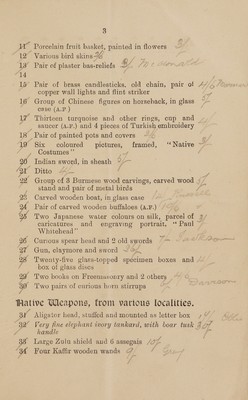 3
11 Porcelain fruit basket, painted in flowers 3/
12 Various bird skins 2/6
13 Pair of plaster bas-reliefs
14
15 Pair of brass candlesticks, old chain, pair of
copper wall lights and flint striker
16 Group of Chinese figures on horseback, in glass
case (A.F.)
17 Thirteen turquoise and other rings, cup and
saucer (A.F.) and 4 pieces of Turkish embroidery
18 Pair of painted pots and covers
19 Six coloured pictures, framed, "Native
Costumes"
20 Indian sword, in sheath
21 Ditto
22 Group of 3 Burmese wood carvings, carved wood
stand and pair of metal birds
23 Carved wooden boat, in glass case
24 Pair of carved wooden buffaloes (A.F.)
25 Two Japanese water colours on silk, parcel of
caricatures and engraving portrait. "Paul
Whitehead"
26 Curious spear head and 2 old swords
27 Gun, claymore and sword
28 Twenty-five glass-topped specimen boxes and
box of glass discs
29 Two books on Freemasonry and 2 others
30 Two pairs of curious horn stirrups
Native Weapons, from various localities.
31 Aligator head, stuffed and mounted as letter box
32 Very fine elephant ivory tankard, with boar tusk
handle
33 Large Zulu shield and 6 assagais 10/
34 Four Kaffir wooden wands